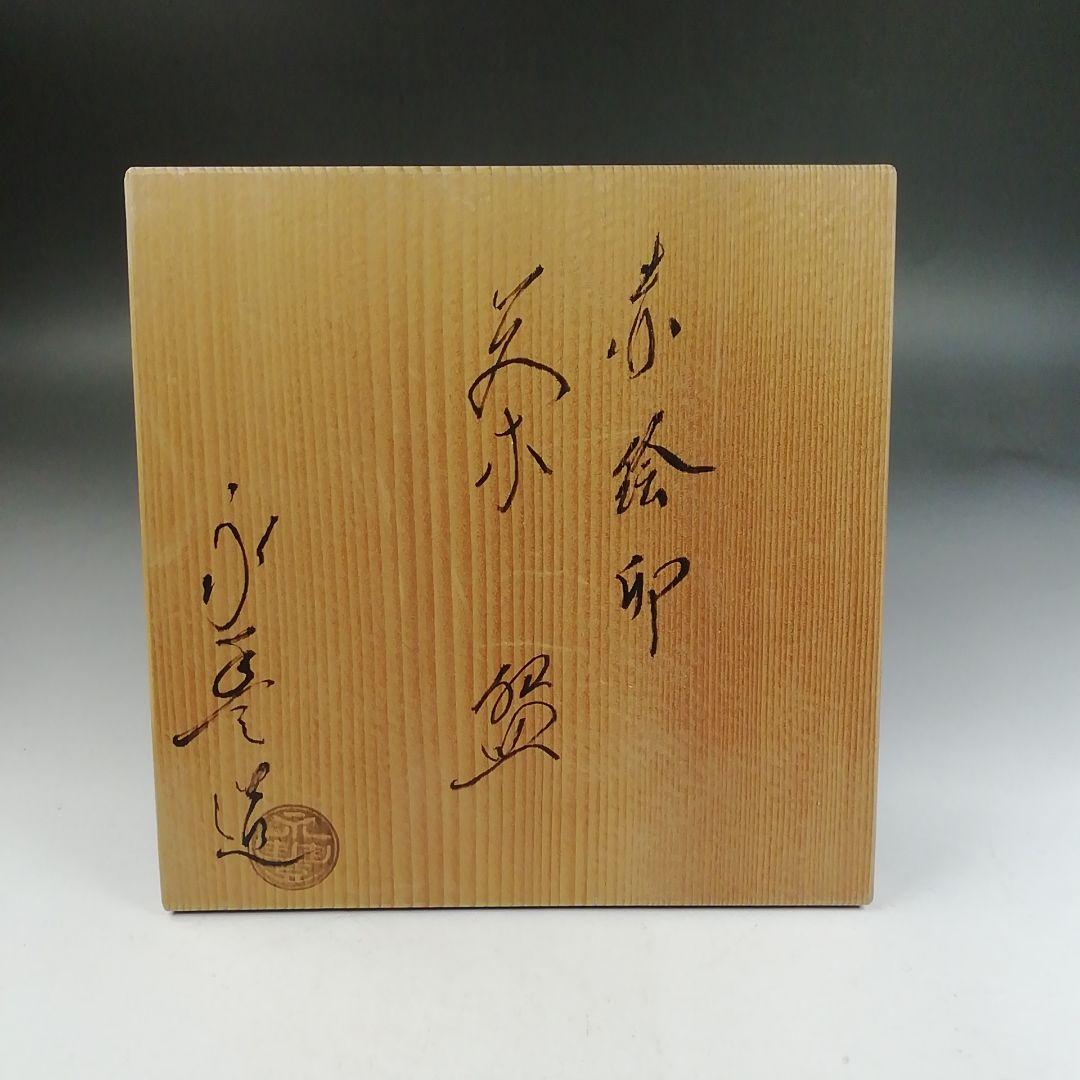 赤絵卯
茶盌
永誉造